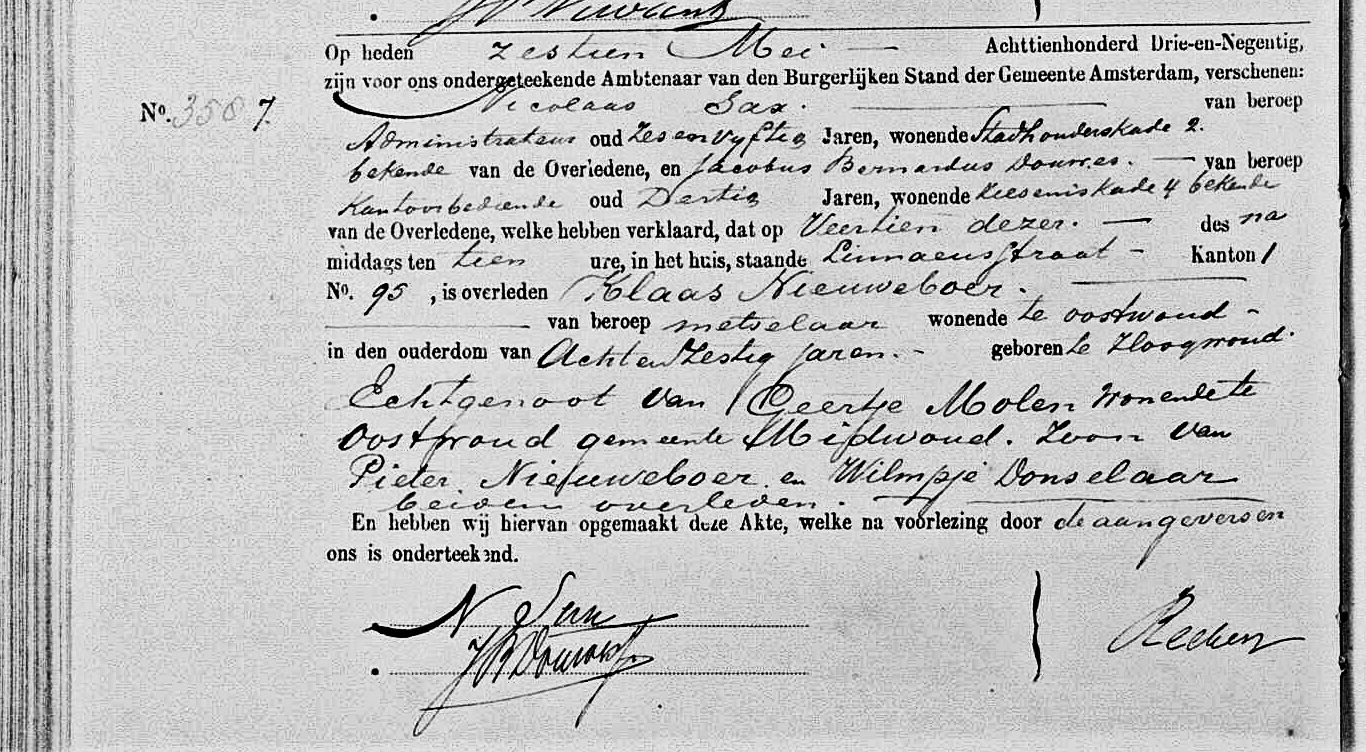 Op heden zestien Mei — Achttienhonderd Drie-en-Negentig,
zijn voor ons ondergeteekende Ambtenaar van den Burgerlijken Stand der Gemeente Amsterdam, verschenen:
No. 3587. Nicolaas Sax. — van beroep
Administrateur oud Zesenvyftig Jaren, wonende Stadhouderskade 2.
bekende van de Overledene, en Jacobus Bernardus Douwes. — van beroep
Kantoorbediende oud Dertig Jaren, wonende 4 bekende
van de Overledene, welke hebben verklaard, dat op Veertien dezer. — des na
middags ten tien ure, in het huis, staande Linnaeusstraat — Kanton 1
No. 95, is overleden Klaas Nieuweboer. —
— van beroep metselaar wonende te oostwoud -
in den ouderdom van Achtenzestig jaren. - geboren te Hoogwoud.
Echtgenoot van Geertje Molen wonende te
Oostwoud gemeente Midwoud. Zoon van
Pieter Nieuweboer en Wilmpje Donselaar
beiden overleden. —
En hebben wij hiervan opgemaakt deze Akte, welke na voorlezing door de aangevers en
ons is onderteekend.
N
JBDouwes